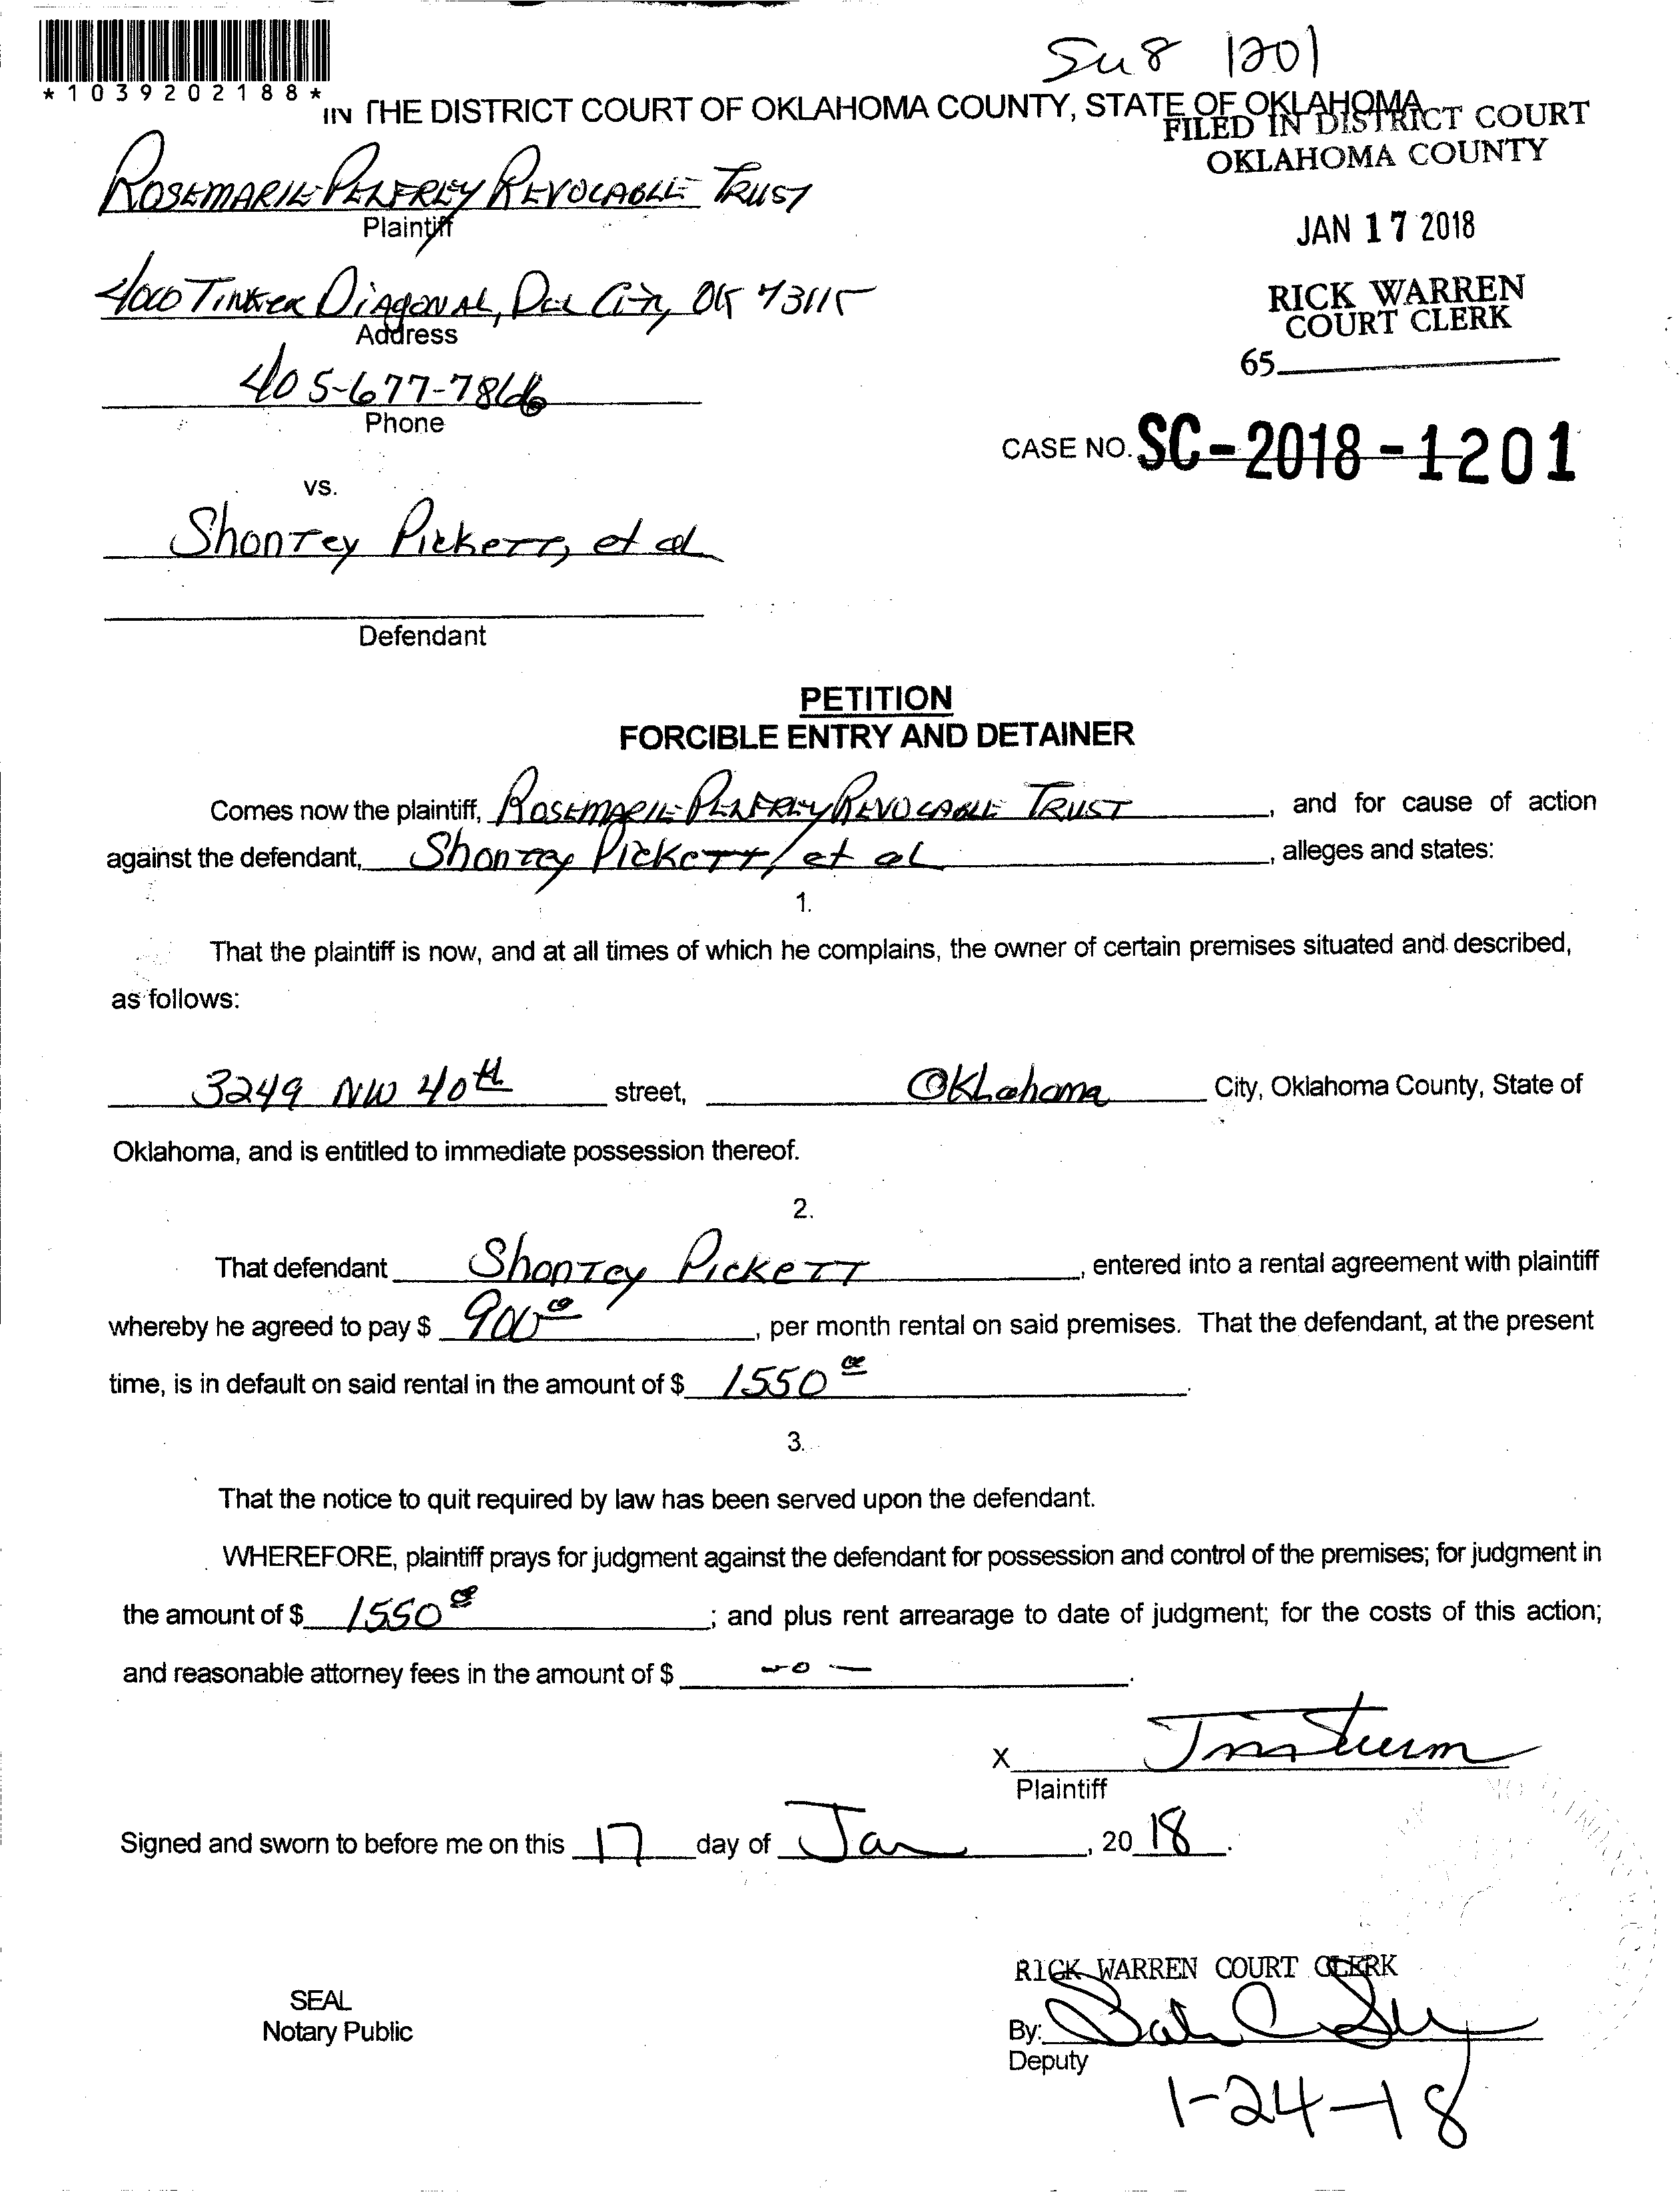 Su8 1201
*1039202188*
IN THE DISTRICT COURT OF OKLAHOMA COUNTY, STATE OF OKLAHOMA
FILED IN DISTRICT COURT
OKLAHOMA COUNTY
ROSEMARIE PELFREY REVOCABLE TRUST
Plaintiff
JAN 17 2018
4000 TINKER DIAGONAL, DEL CITY, OK 73115
Address
RICK WARREN
COURT CLERK
65
405-677-7866
Phone
CASE NO. SC-2018-1201
vs.
Shontey Pickett, et al
Defendant
PETITION
FORCIBLE ENTRY AND DETAINER
Comes now the plaintiff, ROSEMARIE PELFREY REVOCABLE TRUST, and for cause of action
against the defendant, Shontey Pickett, et al, alleges and states:
1.
That the plaintiff is now, and at all times of which he complains, the owner of certain premises situated and described,
as follows:
3249 NW 40th street, Oklahoma City, Oklahoma County, State of
Oklahoma, and is entitled to immediate possession thereof.
2.
That defendant Shontey Pickett, entered into a rental agreement with plaintiff
whereby he agreed to pay $ 900 00, per month rental on said premises. That the defendant, at the present
time, is in default on said rental in the amount of $ 1550 00.
3.
That the notice to quit required by law has been served upon the defendant.
WHEREFORE, plaintiff prays for judgment against the defendant for possession and control of the premises; for judgment in
the amount of $ 1550 00; and plus rent arrearage to date of judgment; for the costs of this action;
and reasonable attorney fees in the amount of $ -0-.
X
Plaintiff
Signed and sworn to before me on this 17 day of Jan, 2018.
RICK WARREN COURT CLERK
SEAL
Notary Public
By:
Deputy
1-24-18